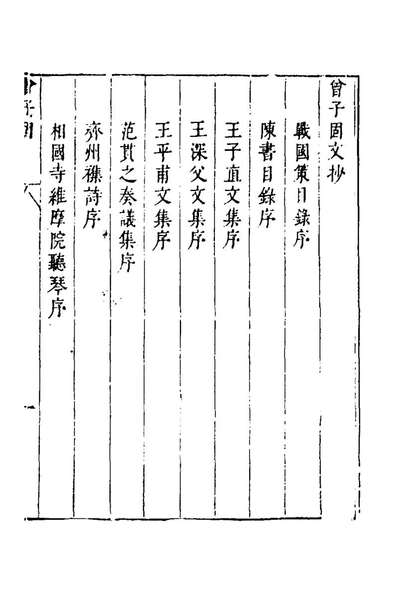 曾子固文抄
戰國策目錄序
陳書目錄序
王子直文集序
王深父文集序
王平甫文集序
范貫之奏議集序
齊州襍詩序
相國寺維摩院聽琴序